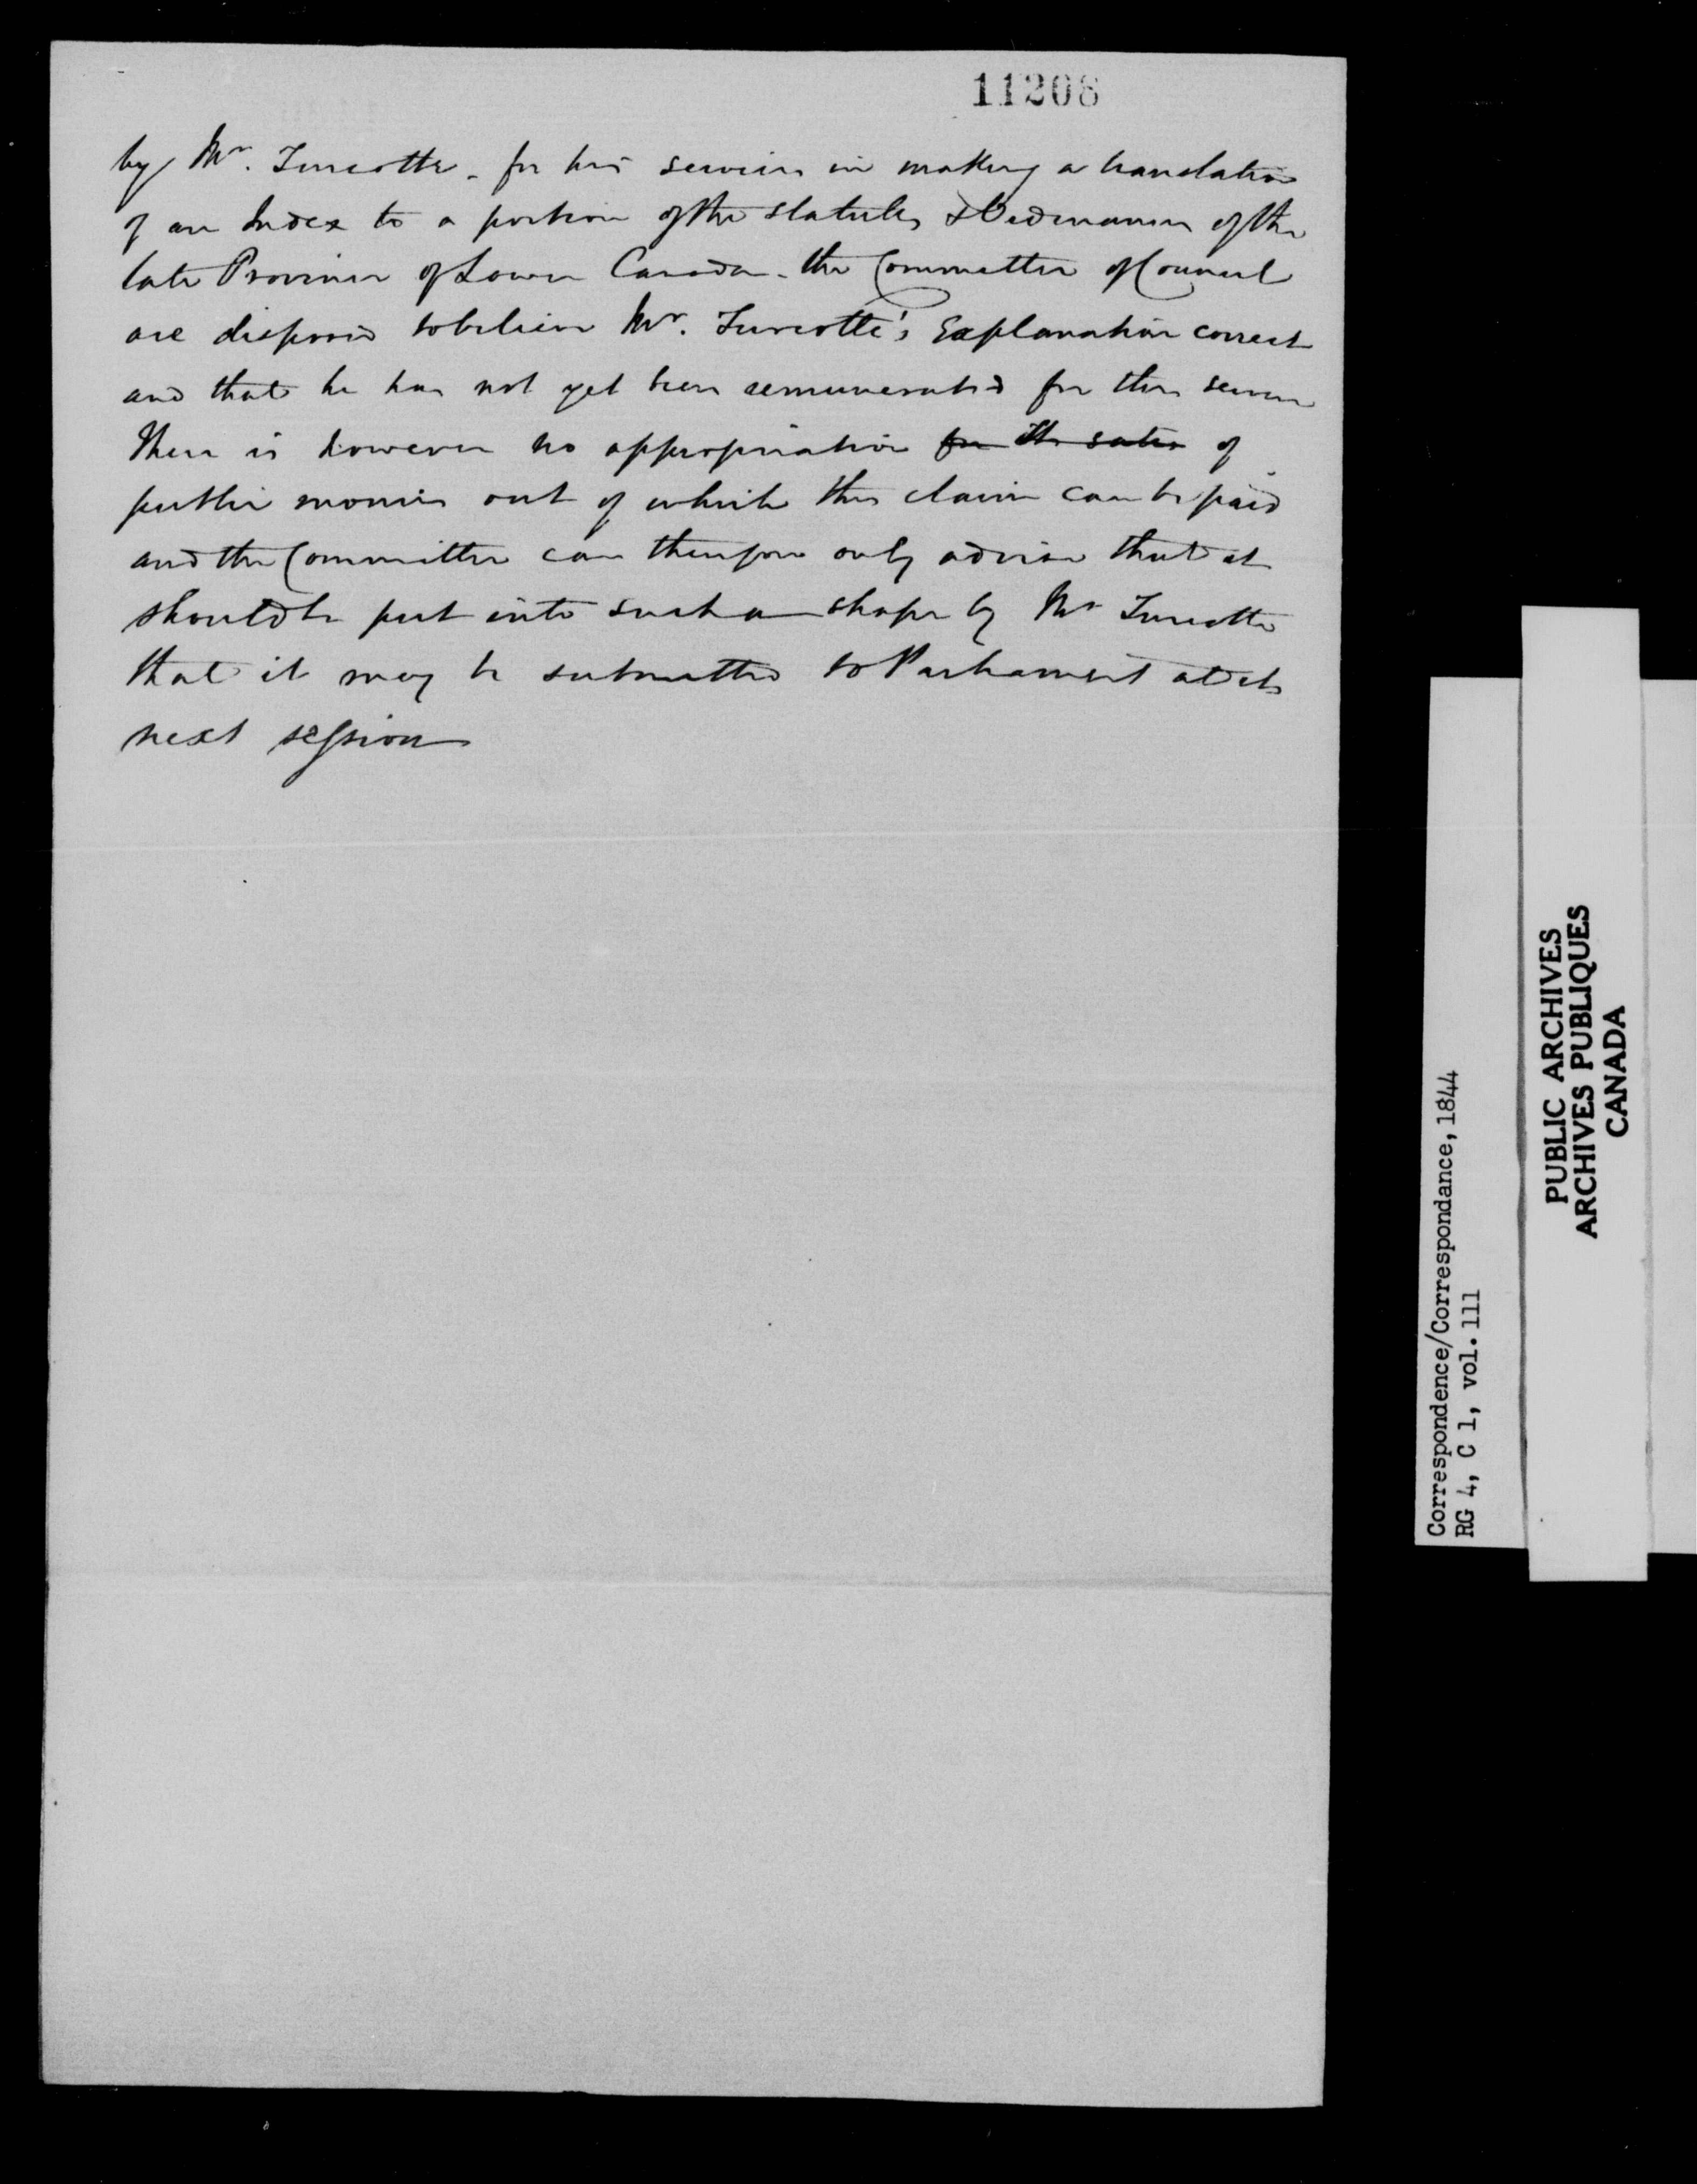 11208
by Mr. Turcotte - for his services in making a translation
of an Index to a portion of the Statutes & Ordinances of the
late Province of Lower Canada - the Committee of Council
are disposed to believe Mr. Turcotte's Explanation correct
and that he has not yet been remunerated for this service
There is however no appropriation for the of
public monies out of which this claim can be paid
and the Committee can therefore only advise that it
should be put into such a shape by Mr Turcotte
that it may be submitted to Parliament at its
next session
Correspondence/Correspondance, 1844
RG 4, C 1, vol. 111
PUBLIC ARCHIVES
ARCHIVES PUBLIQUES
CANADA